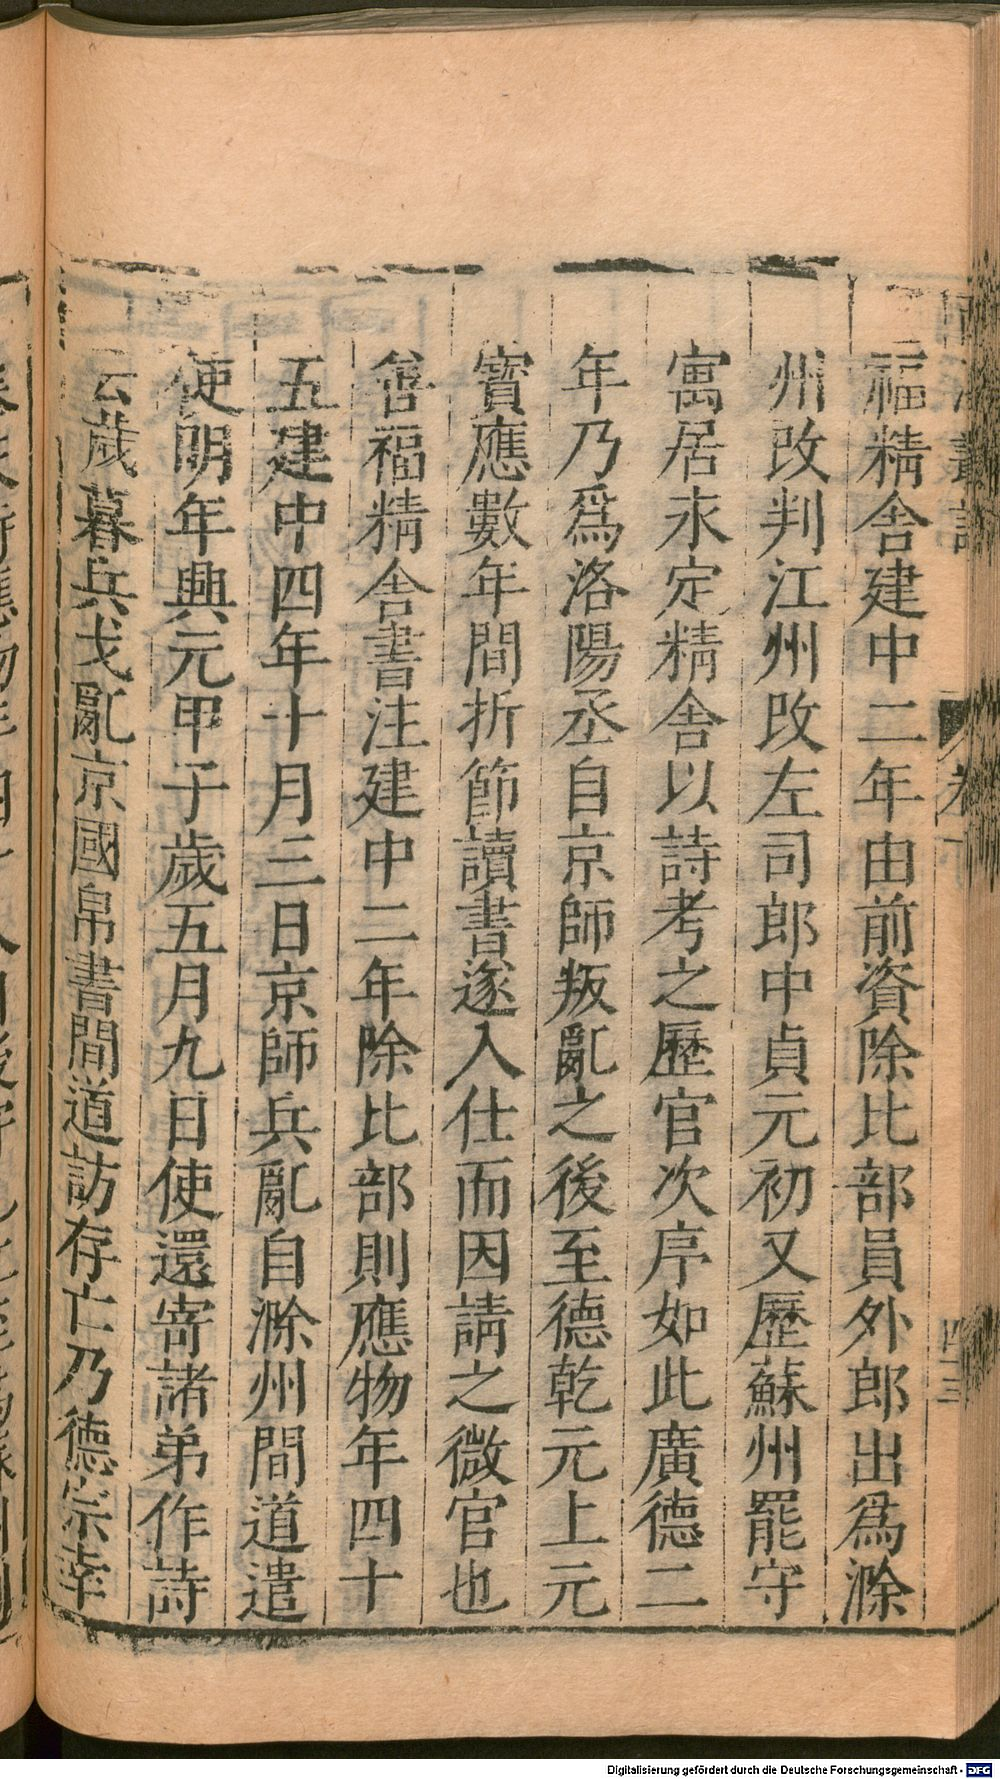 福精舍建中二年由前資除比部員外郎出爲滁
州改判江州改左司郎中貞元初又歷蘇州罷守
寓居永定精舍以詩考之歷官次序如此廣德二
年乃爲洛陽丞自京師叛亂之後至德乾元上元
寶應數年間折節讀書遂入仕而因請之微官也
善福精舍書注建中二年除比部則應物年四十
五建中四年十月三日京師兵亂自滁州間道遣
使明年興元甲子歲五月九日使還寄諸弟作詩
云歲暮兵戈亂京國帛書間道訪存亡乃德宗幸
Digitalisierung gefördert durch die Deutsche Forschungsgemeinschaft - DFG